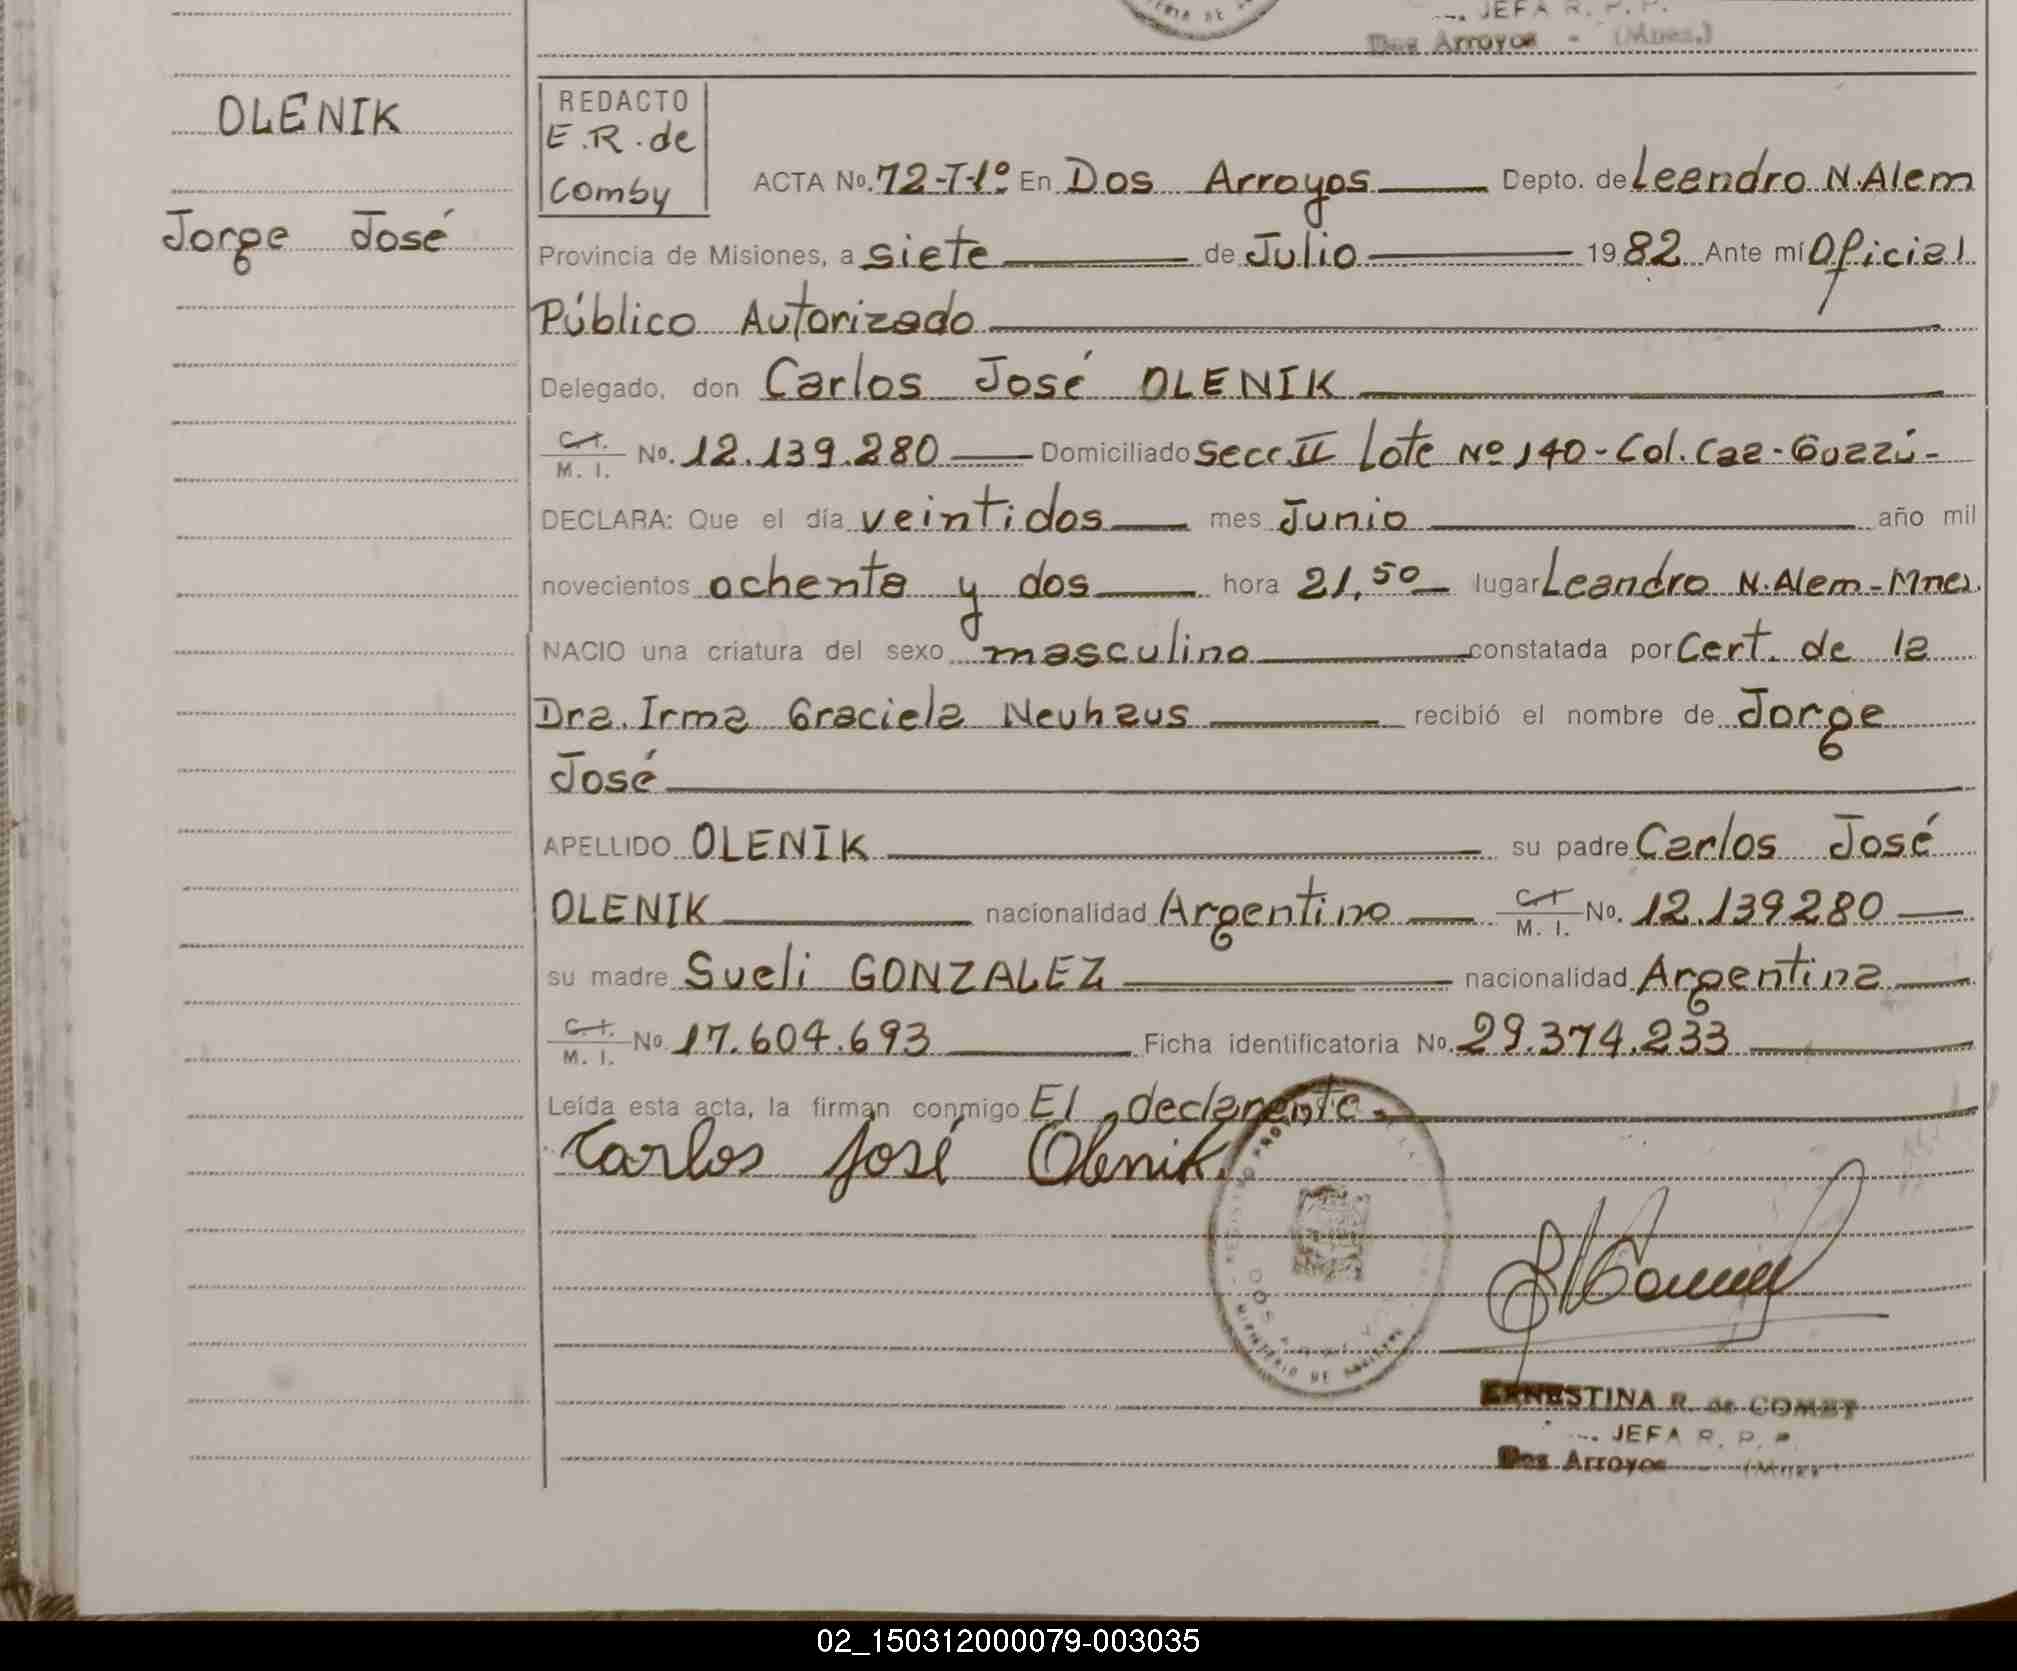 JEFA R. P. P.
Dos Arroyos - (Mnes.)
OLENIK
Jorge José
REDACTO
E.R. de
Comby
ACTA No. 72-T-1º En Dos Arroyos Depto. de Leandro N. Alem
Provincia de Misiones, a siete de Julio 1982 Ante mí Oficial
Público Autorizado
Delegado, don Carlos José OLENIK
C.I. M. I. No. 12.139.280 Domiciliado Secc II Lote Nº 140-Col. Caa-Guazú-
DECLARA: Que el día veintidos mes Junio año mil
novecientos ochenta y dos hora 21,50 lugar Leandro N. Alem-Mnes.
NACIO una criatura del sexo masculino constatada por Cert. de la
Dra. Irma Graciela Neuhaus recibió el nombre de Jorge
José
APELLIDO OLENIK su padre Carlos José
OLENIK nacionalidad Argentino C.I. M. I. No. 12.139280
su madre Sueli GONZALEZ nacionalidad Argentina
C.I. M. I. No. 17.604.693 Ficha identificatoria No. 29.374.233
Leída esta acta, la firman conmigo El declarante.
Carlos José Olenik.
DOS ARROYOS
MINISTERIO DE GOBIERNO
ERNESTINA R. de COMBY
JEFA R. P. P.
Dos Arroyos (Mnes)
02_150312000079-003035